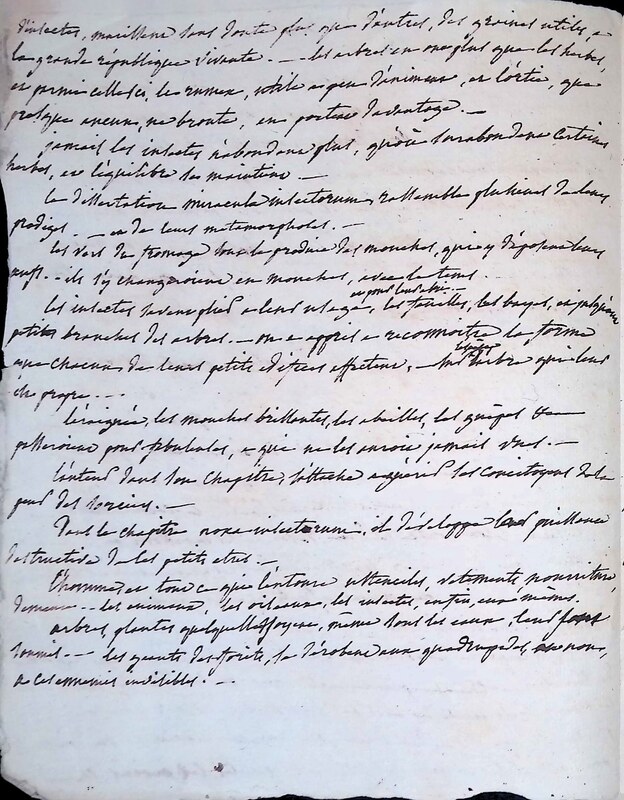 d'insectes, maillene sans doute plus que d'autres, des graines utiles, a
la grande république vivante. — les arbres en ont plus que les herbes,
et parmi celles ci, les rumex, utile a peu d'animaux, et l'ortie, que
presque aucun, ne broute, en portent davantage. —
jamais les insectes n'abondent plus, qu'où surabondent certaines
herbes, et l'équilibre se maintient —
la dissertation miracula insectorum, rassemble plusieurs de leurs
prodiges. — et de leurs metamorphoses. —
les vers du fromage sont le produit des mouches, qui y déposent leurs
œufs. - ils s'y changeroient en mouches, avec le tems.
et pour leur abri —
les insectes savent plier a leur usage, les feuilles, les bayes, et jusqu'aux
petites branches des arbres. — on a appris a reconnoitre la forme
que chacun de leurs petits édifices affectent, — sur l'arbre qui leur
est propre. —
l'araignée, les mouches brillantes, les abeilles, les guêpes &c
passeroient pour fabuleuses, a qui ne les auroit jamais vues. —
l'auteur dans son chapitre, s'attache a guérir ses concitoyens de la
peur des sorciers. —
Dans le chapitre noxa insectorum, il développe leur puissance
destructive de ces petits etres —
l'homme, et tout ce qui l'entoure ustenciles, vetements, nourriture,
demeure - les animaux, les oiseaux, les insectes, enfin, eux mêmes.
arbres, plantes quelles qu'elles soyent, meme sous les eaux, leur sont
soumis. — les géants des forêts, se dérobent aux quadrupedes, non,
a ces ennemis invisibles. —